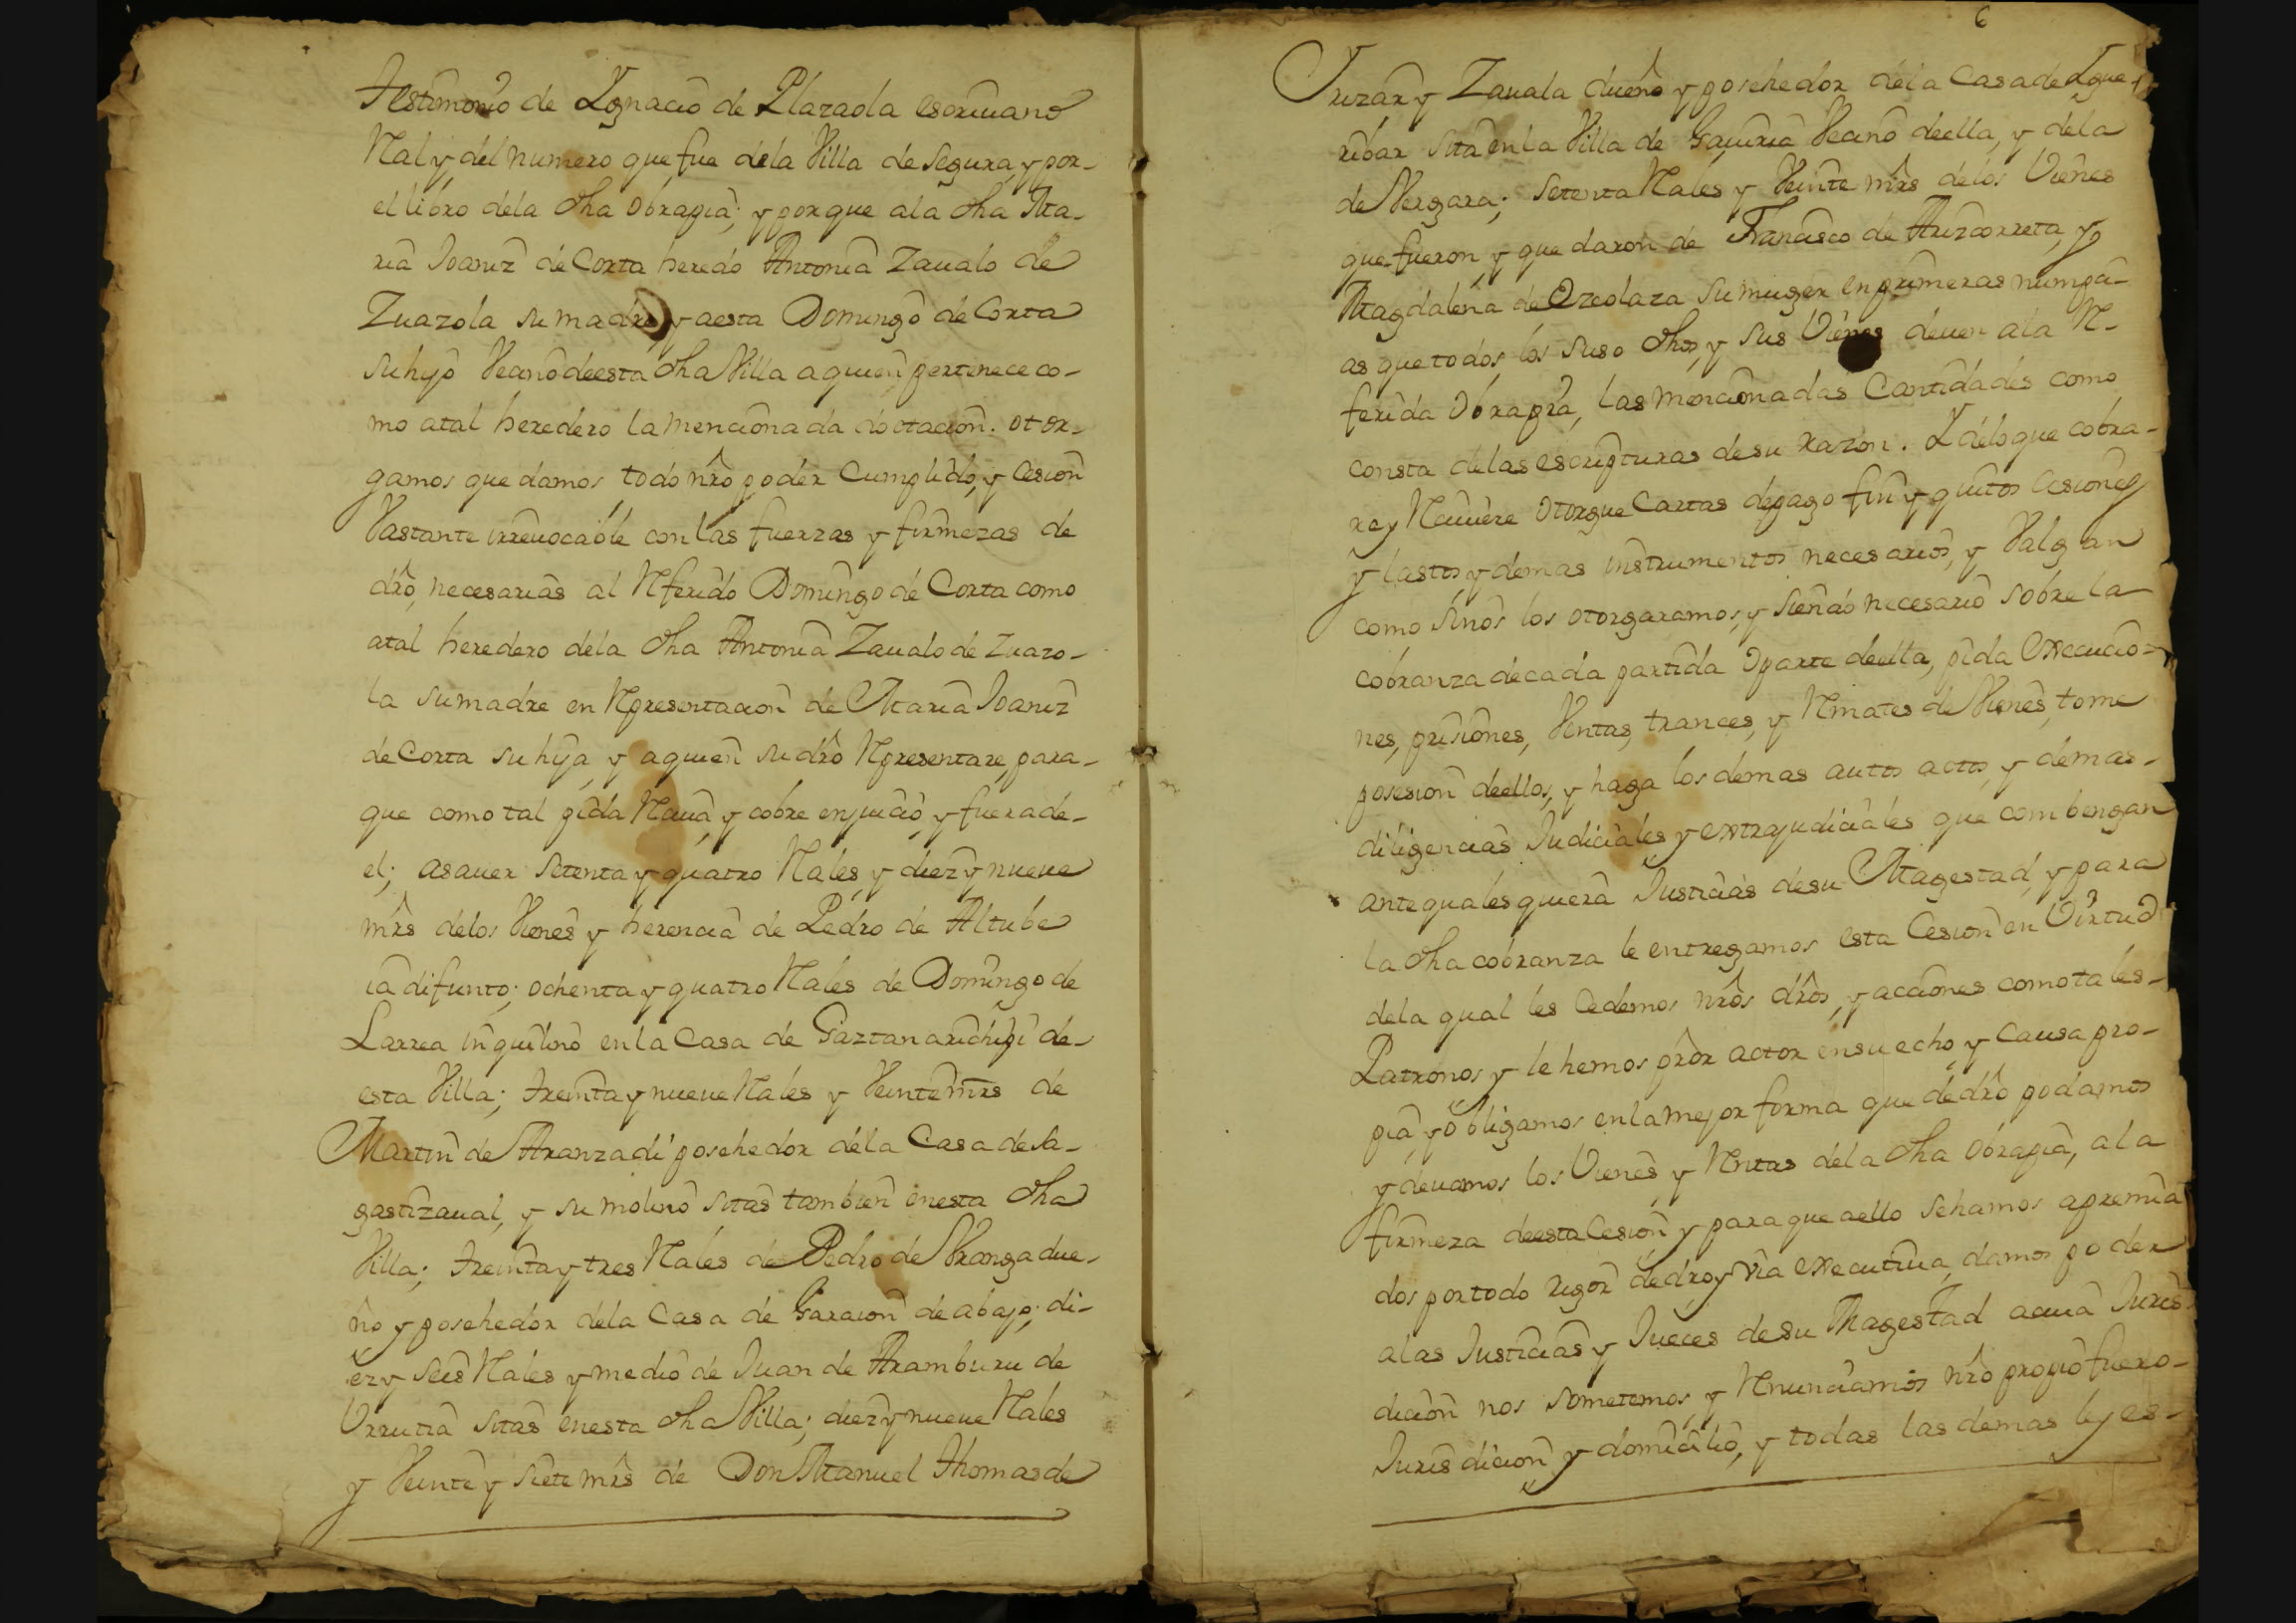 testimonio de Ygnacio de Plazaola escriuano
Real y del numero que fue dela Villa de Segura, y por-
el libro dela dha obrapia; y porque ala dha Ma-
ria Joaniz de Corta heredo Antonia Zaualo de
Zuazola su madre, y aesta Domingo de Corta
su hijo Vecino deesta dha Villa a quien pertenece co-
mo atal heredero la mencionada dotacion. otor-
gamos que damos todo nro poder Cumplido, y Cesion
Vastante irreuocable con las fuerzas y firmezas de
dro, necesarias al Referido Domingo de Corta como
atal heredero dela dha Antonia Zaualo de Zuazo-
la su madre en Representacion de Maria Joaniz
de Corta su hija, y aquien su dro Representare, para-
que como tal pida Reciua, y cobre en juicio, y fuera de-
el; asauer setenta y quatro Rales, y diez y nueue
mrs delos Vienes y herencia de Pedro de Altube
ia difunto; ochenta y quatro Rales de Domingo de
Larrea inquilino en la Casa de Gaztanarichipi de-
esta Villa; treinta y nueue Rales y Veinte mrs de
Martin de Aranzadi posehedor dela Casa de Sa-
gastizaual, y su molino sitas tambien enesta dha
Villa; treinta y tres Rales de Pedro de Vranga due-
ño y posehedor dela Casa de Garacion de abajo; di-
ez y seis Rales y medio de Juan de Aramburu de
Vrrutia sitas enesta dha Villa; diez y nueue Rales
y Veinte y siete mrs de Don Manuel thomas de
6
Yrizar y Zauala dueño y posehedor dela Casa de Ygue-
ribar sita en la Villa de Gauiria Vecino deella, y dela
de Vergara; setenta Rales y Veinte mrs delos Vienes
que fueron y quedaron de Francisco de Arizcorreta, y
Magdalena de Ozcolaza su muger en primeras numpci-
as que todos los suso dhos, y sus Vienes deuen ala Re-
ferida obrapia, las mencionadas Cantidades como
consta delas escripturas de su razon. Y delo que cobra-
re y Reciuiere otorgue Cartas depago fin y quito Cesiones
y lastos, y demas instrumentos necesarios, y Valgan
como si nos los otorgaramos, y siendo necesario sobre la
cobranza de cada partida oparte deella, pida execucio-
nes, prisiones, Ventas, trances, y Rmates de Vienes, tome
posesion deellos, y haga los demas autos actos, y demas-
diligencias Judiciales y extrajudiciales que combengan
ante qualesquiera Justicias desu Magestad, y para
la dha cobranza le entregamos esta Cesion en Virtud
dela qual les Cedemos nros dros, y acciones como tales-
Patronos y le hemos pror actor ensu echo, y Causa pro-
pia, y obligamos en la mejor forma que de dro podamos
y deuamos los Vienes y Rentas dela dha obrapia, ala
firmeza deesta Cesion y para que aello sehamos apremia
dos por todo rigor de dro y Via executiua, damos poder
alas Justicias y Jueces desu Magestad acuia Juris
dicion nos sometemos, y Renunciamos nro propio fuero-
Jurisdicion y domicilio, y todas las demas leyes-